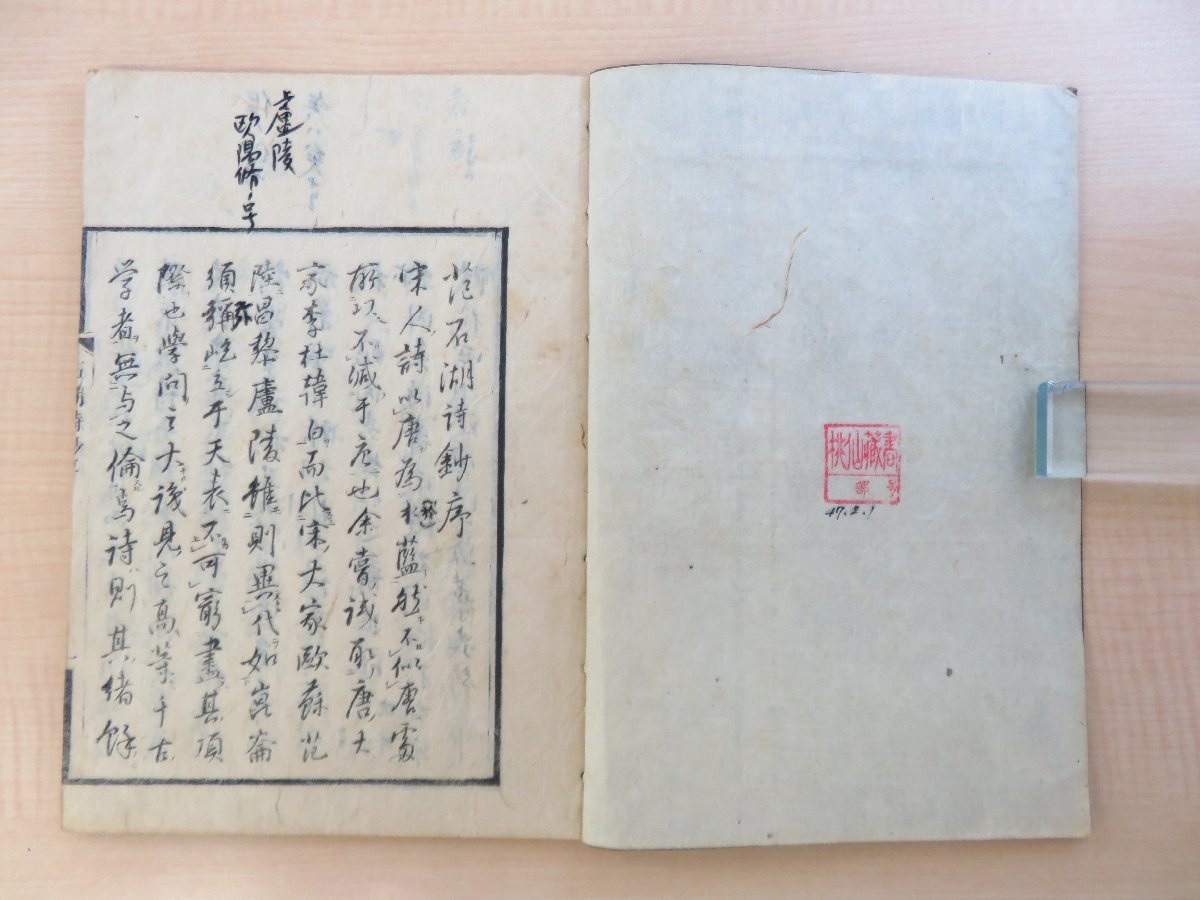 桃仙藏書
部
47.2.1
廬陵
欧陽脩号
范石湖詩鈔序
宋人詩以唐為出藍然不似唐處
所以不減于唐也余嘗試取唐大
家李杜韓白而比宋大家歐蘇范
陸昌黎廬陵雖則異代如崑崙
須彌屹立于天表不可窮盡其頂
際也學問之大識見之高榮千古
学者無与之倫焉詩則其緒餘
石湖詩鈔